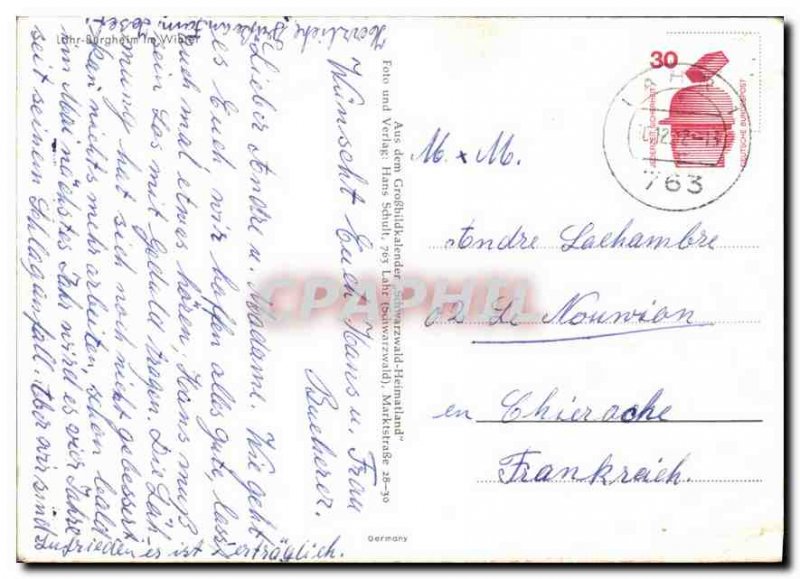 Lahr-Burgheim im Winter
Herzliche Grüße
Lieber Andre u. Madame. Wie geht
es Euch wir hoffen alles gute, lass
Euch mal etwas hören, Hans muß
sein Los mit Geduld tragen. Die Läh
mung hat sich noch nicht gebessert
kan nichts mehr arbeiten, schon bald
im Mai nächstes Jahr wird es vier Jahre
seit seinen Schlaganfall. Aber wir sind
zufrieden es ist erträglich.
Wünscht Euch Hans u. Frau
Bucherer.
Aus dem Großbildkalender „Schwarzwald-Heimatland“
Foto und Verlag: Hans Schult, 763 Lahr (Schwarzwald), Marktstraße 28-30
Germany
30
JEDERZEIT SICHERHEIT
DEUTSCHE BUNDESPOST
LAHR 1
763
M. x M.
Andre Lachambre
02 Le Nouvion
en Thierache
Frankreich.
CPAPHIL